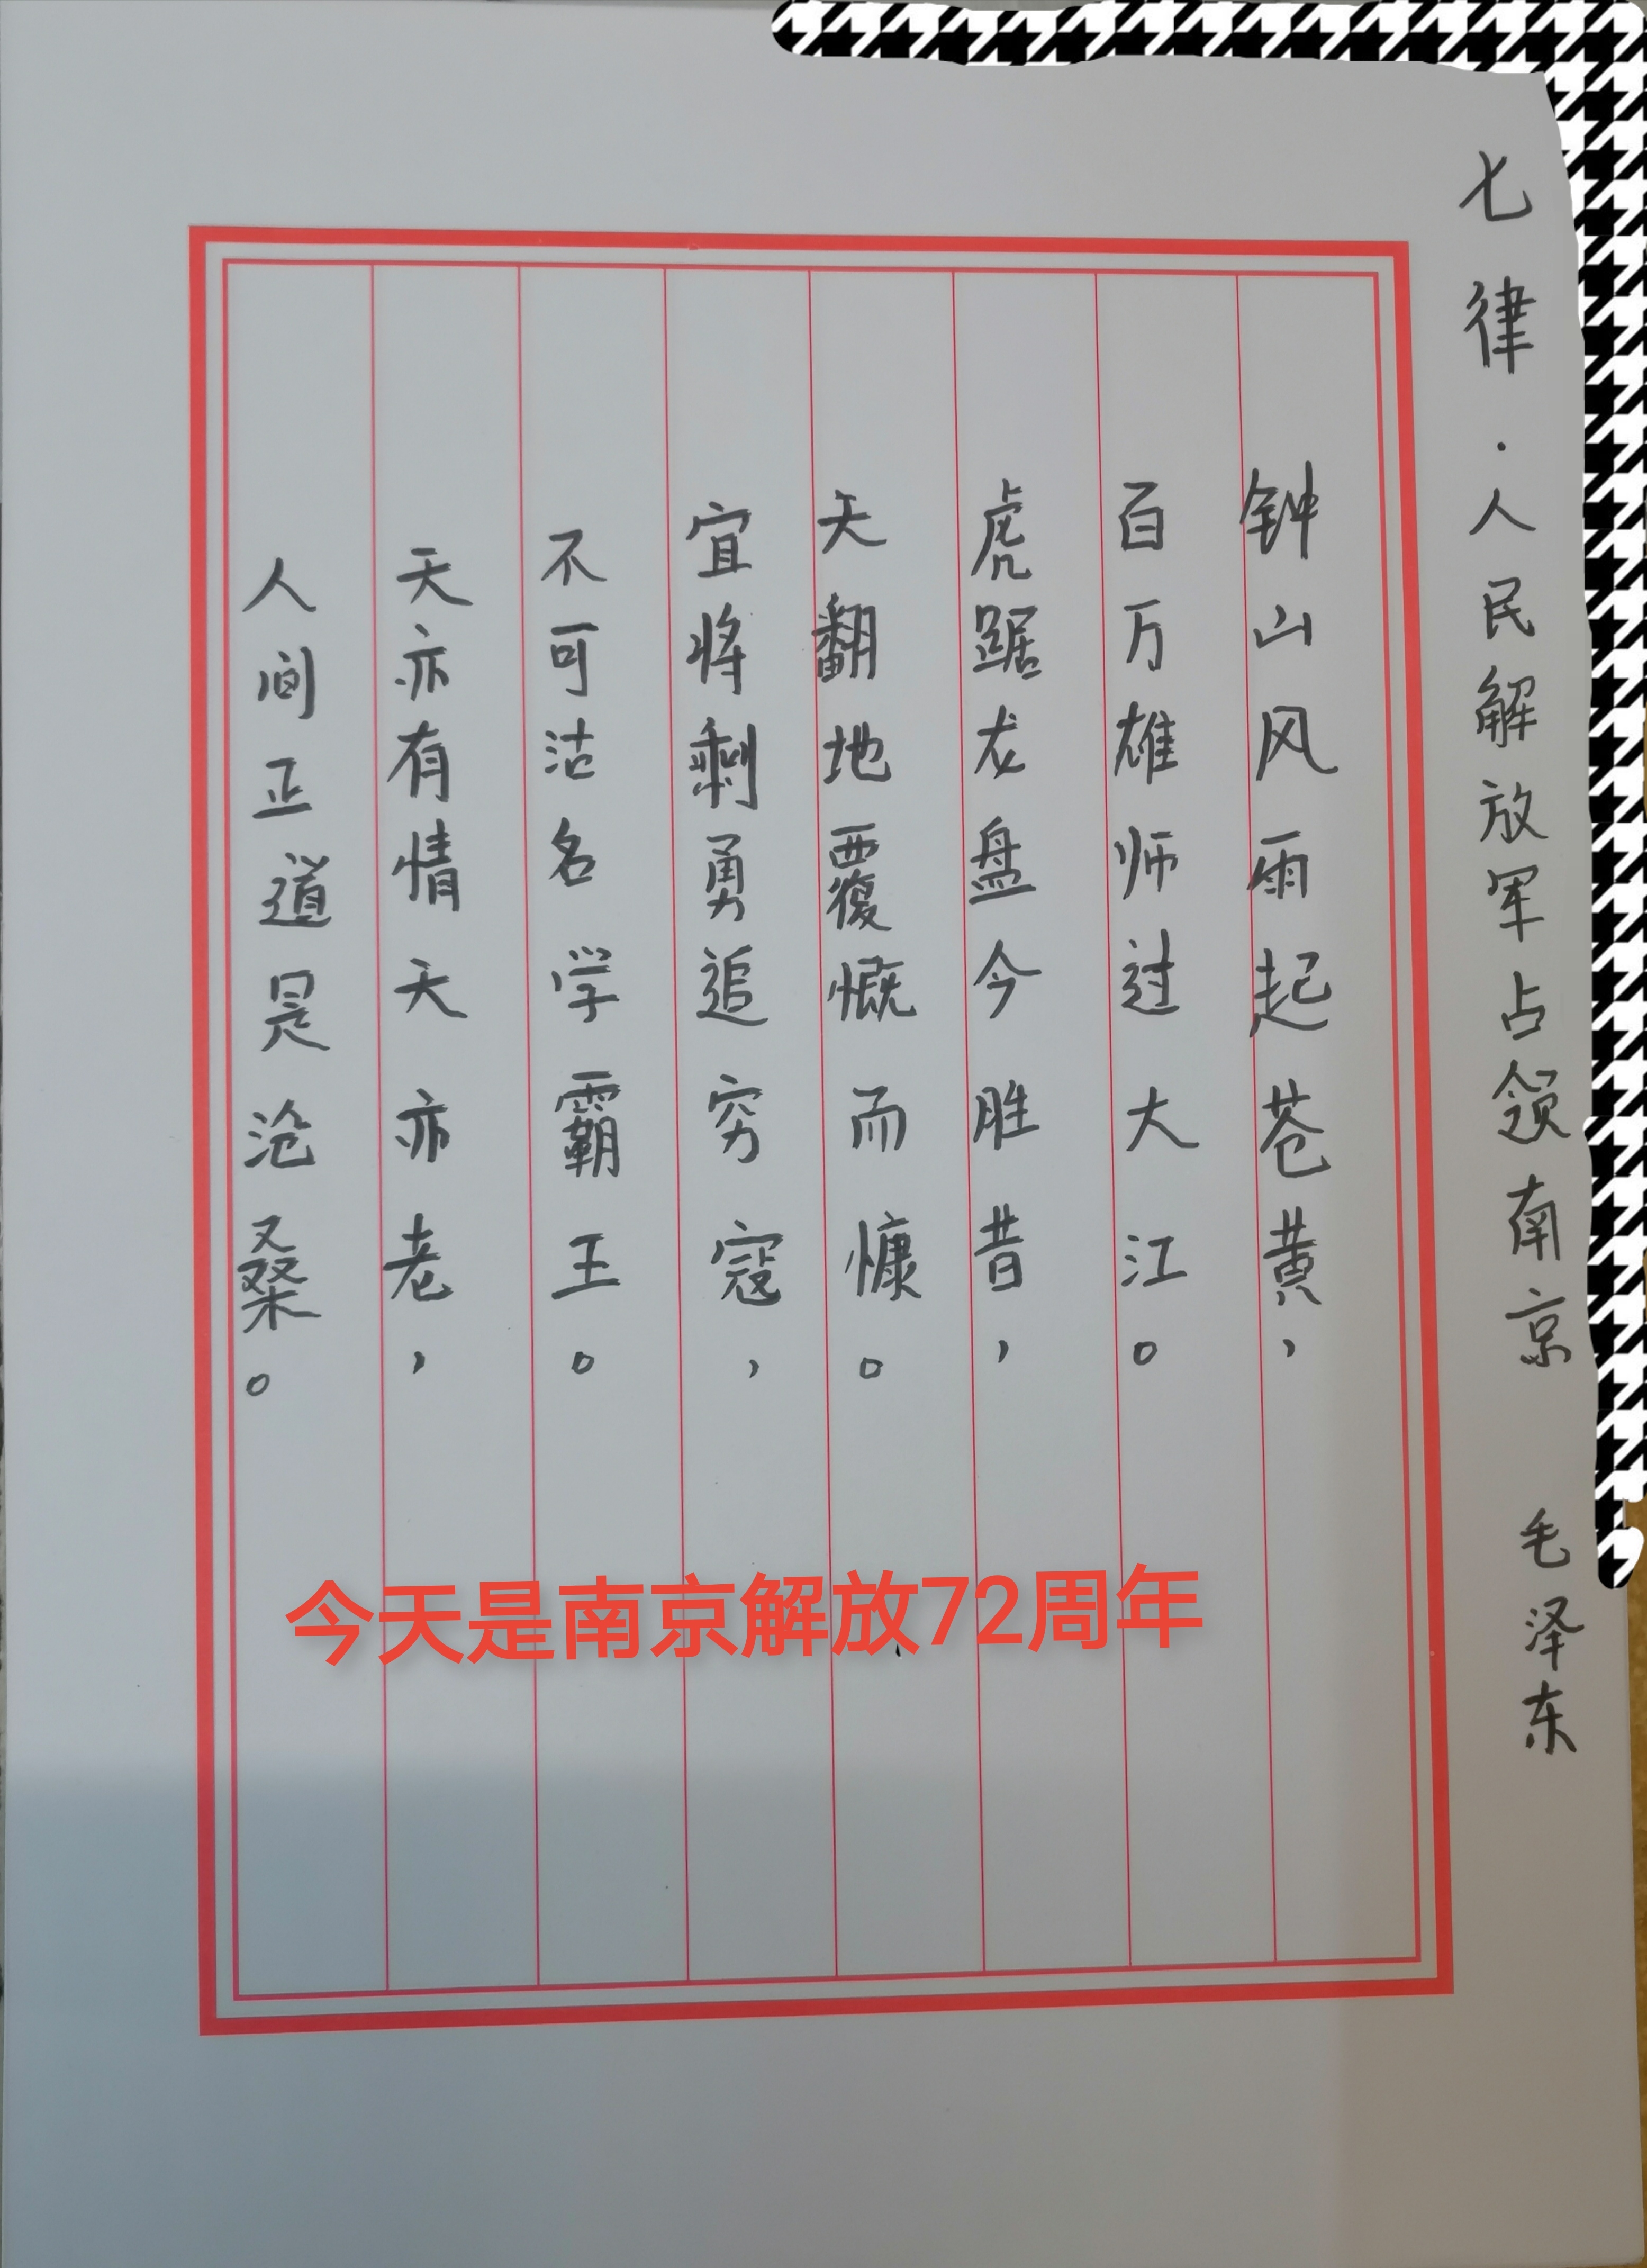 七律·人民解放军占领南京 毛泽东
钟山风雨起苍黄，
百万雄师过大江。
虎踞龙盘今胜昔，
天翻地覆慨而慷。
宜将剩勇追穷寇，
不可沽名学霸王。
天亦有情天亦老，
人间正道是沧桑。
今天是南京解放72周年